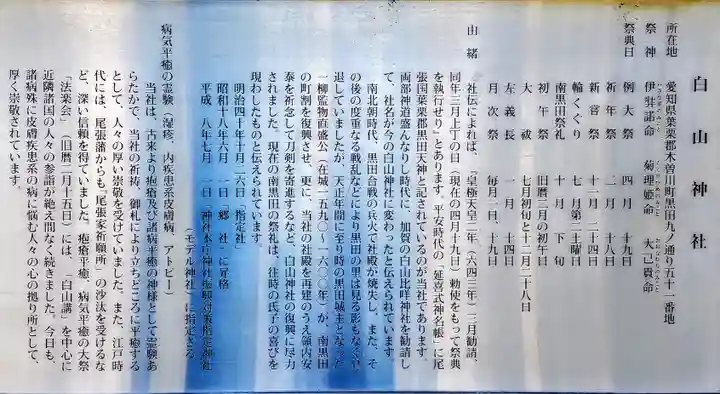 白山神社
所在地　愛知県葉栗郡木曽川町黒田九ノ通り五十一番地
祭神　伊弉諾命　菊理姫命　大己貴命
祭典日　例大祭　四月　十九日
祈年祭　二月　十八日
新嘗祭　十二月　二十四日
輪くぐり　七月第二土曜日
南黒田祭礼　十月　下旬
初午祭　旧暦三月の初午日
大祓　七月初旬と十二月二十八日
左義長　一月　十四日
月次祭　毎月一日、十九日
由緒　社伝によれば、「皇極天皇二年(六四三年)三月勧請、
同年三月上丁の日(現在の四月十九日)勅使をもって祭典
を執行せり」とあります。平安時代の「延喜式神名帳」に尾
張国葉栗郡黒田天神と記されているのが当社であります。
両部神道盛んなりし時代に、加賀の白山比咩神社を勧請し
て、社名が今の白山神社に変わったと伝えられています。
南北朝時代、黒田合戦の兵火で社殿が焼失し、また、そ
の後の度重なる戦乱などにより黒田の里は見る影もなく衰
退していましたが、天正年間に至り時の黒田城主となった
一柳監物直盛公(在城一五九〇～一六〇〇年)が、南黒田
の町割を復興させ、更に、当社の社殿を再建のうえ領内安
泰を祈念して刀剣を寄進するなど、白山神社の復興に尽力
されました。現在の南黒田の祭礼は、往時の氏子の喜びを
現わしたものと伝えられています。
明治四十年十月二六日　指定社
昭和十八年六月　一日「郷　社」に昇格
平成　八年七月　一日　神社本庁神社振興対策指定神社
(モデル神社)に指定さる
病気平癒の霊験(湿疹、内疾患系皮膚病、アトピー)
当社は、古来より疱瘡及び諸病平癒の神様として霊験あ
らたかで、当社の祈祷、御札により立ちどころに平癒する
として、人々の厚い崇敬を受けていました。また、江戸時
代には、尾張藩からも「尾張家祈願所」の沙汰を受けるな
ど、深い信頼を得ていました。疱瘡平癒、病気平癒の大祭
「法楽会」(旧暦二月十五日)には、「白山講」を中心に
近隣諸国の人々の参詣が絶え間なく続きました。今日も、
諸病殊に皮膚疾患系の病に悩む人々の心の拠り所として、
厚く崇敬されています。